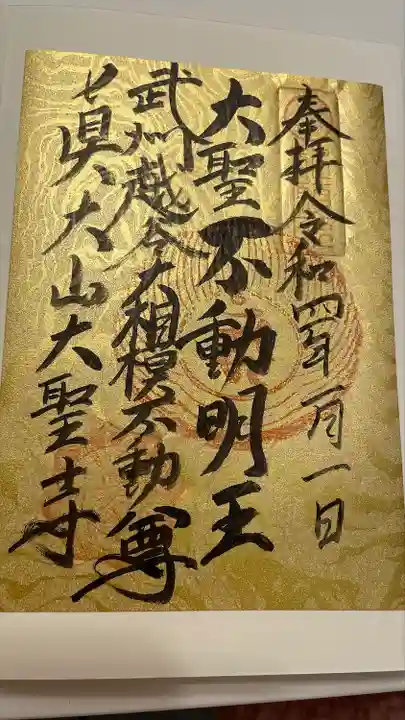 奉拝 令和四年一月一日
大聖不動明王
武州越谷大相模不動尊
真大山大聖寺